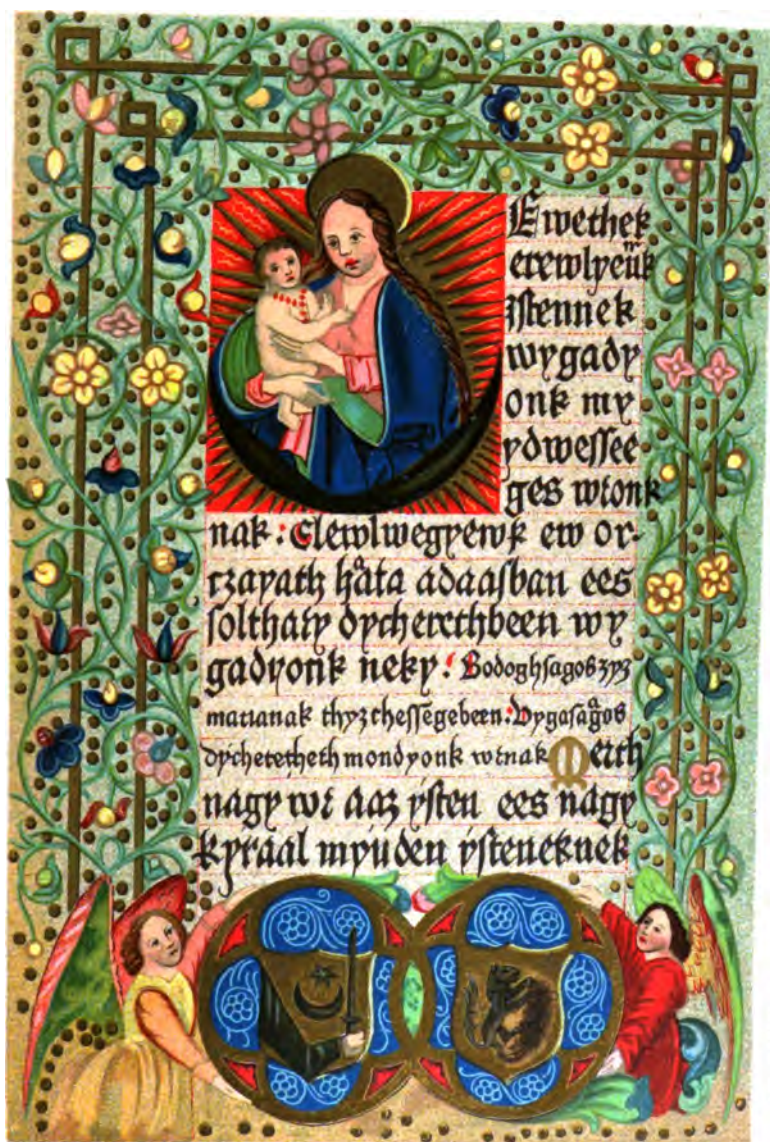 Ewethek
erewlyeünk
ystennek
wygady
onk my
ydwessee
ges wronk
nak : Elewlwegyewk ew or-
czayath hata adaasban ees
solthary dycherethbeen wy
gadyonk neky : Bodoghsagos zyz
marianak thyzthessegebeen : Vygasagos
dycheretheth mondyonk wrnak Merth
nagy wr aaz ysten ees nagy
kyraal mynden ysteneknek